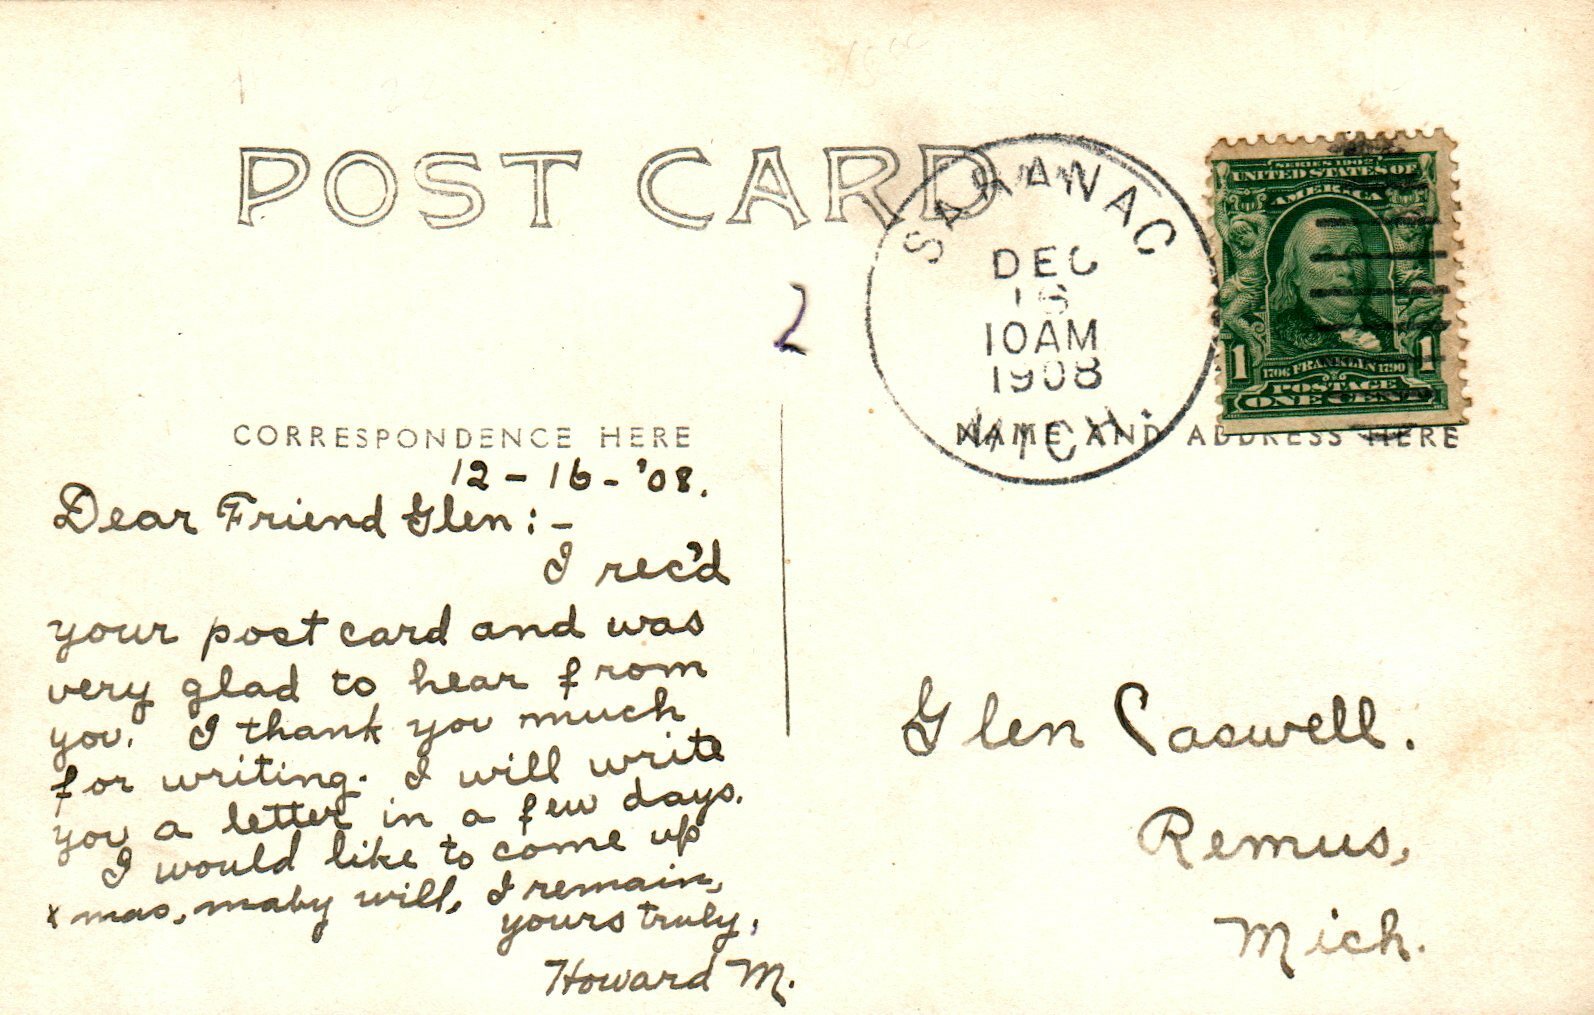 POST CARD
SARANAC
DEC
16
10AM
1908
MICH.
SERIES 1902
UNITED STATES OF
AMERICA
1706 FRANKLIN 1790
1 1
POSTAGE
ONE CENT
2
CORRESPONDENCE HERE
NAME AND ADDRESS HERE
12-16-'08.
Dear Friend Glen:-
I rec'd
your post card and was
very glad to hear from
you. I thank you much
for writing. I will write
you a letter in a few days.
I would like to come up
xmas, maby will, I remain,
yours truly,
Howard M.
Glen Caswell.
Remus,
Mich.